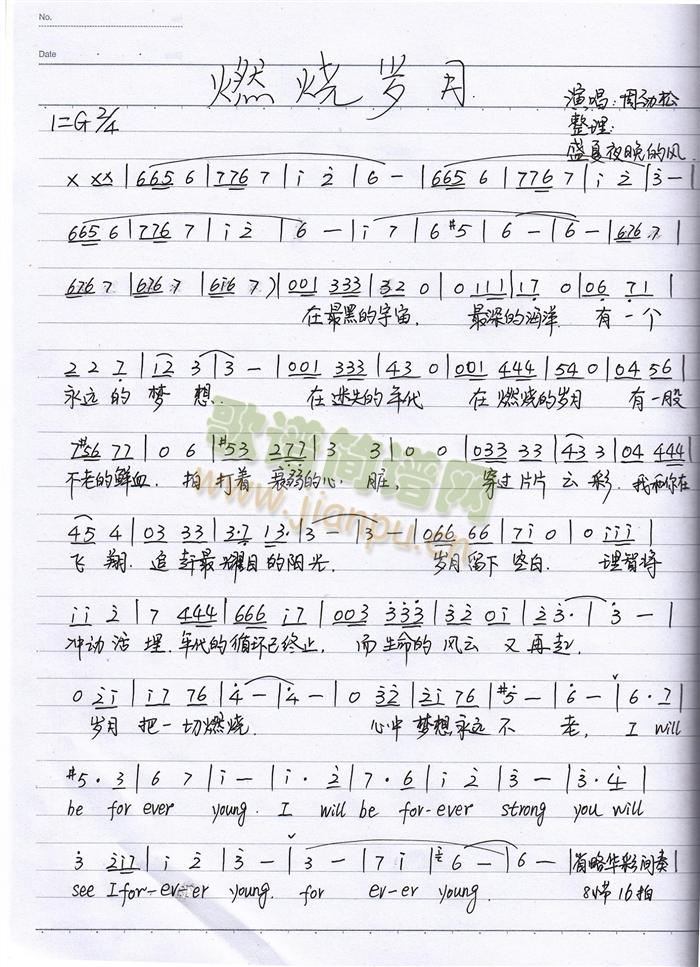 No.
Date
燃烧岁月
1=G 2/4
演唱:周劲松
整理:
盛夏夜晚的风
x xx | 665 6 | 776 7 | i 2 | 6 - | 665 6 | 776 7 | i 2 | 3 - |
665 6 | 776 7 | i 2 | 6 - | i 7 | 6 #5 | 6 - | 6 - | 676 7 |
676 7 | 676 7 | 6i6 7 ) | 001 333 | 32 0 | 0 111 | 17 0 | 06 71 |
在最黑的宇宙. 最深的海洋 有一个
2 2 7 | 12 3 | 3 - | 001 333 | 43 0 | 001 444 | 54 0 | 04 56 |
永远的梦想. 在迷失的年代 在燃烧的岁月 有一股
7#56 77 | 0 6 | #53 277 | 3 3 | 0 0 | 033 33 | 43 3 | 04 444 |
不老的鲜血. 拍打着衰弱的心脏, 穿过片片云彩. 我和你在
45 4 | 03 33 | 3·7 13· | 3 - | 3 - | 066 66 | 7i 0 | 0 iii |
飞翔. 追赶最耀目的阳光. 岁月留下空白. 理智将
ii 2 | 7 444 | 666 i7 | 003 333 | 32 0i | 23· | 3 - |
冲动活埋. 年代的循环已终止, 而生命的风云又再起.
0 2i | i7 76 | 4 - | 4 - | 0 32 | 2i 76 | #5 - | 6 - | 6 · 7 |
岁月把一切燃烧. 心中梦想永远不老, I will
#5 · 3 | 6 7 | i - | i · 2 | 7 · 6 | i 2 | 3 - | 3 · 4 |
be for ever young. I will be for-ever strong you will
3 2i7 | i 2 | 3 - | 3 - | 7 i | 6 - | 6 - | 省略华彩间奏
see I for-ev-er young. for ev-er young. 8小节16拍
歌谱简谱网
www.jianpu.cn